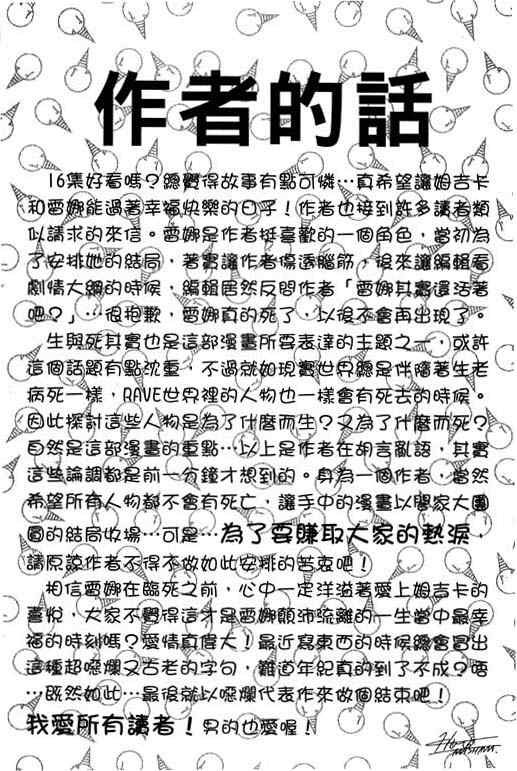 作者的話
16集好看嗎？總覺得故事有點可憐…真希望讓姆吉卡
和雷娜能過著幸福快樂的日子！作者也接到許多讀者類
似請求的來信。雷娜是作者挺喜歡的一個角色，當初為
了安排她的結局，著實讓作者傷透腦筋，後來讓編輯看
劇情大綱的時候，編輯居然反問作者「雷娜其實還活著
吧？」…很抱歉，雷娜真的死了，以後不會再出現了。
生與死其實也是這部漫畫所要表達的主題之一，或許
這個話題有點沈重，不過就如現實世界總是伴隨著生老
病死一樣，RAVE世界裡的人物也一樣會有死去的時候。
因此探討這些人物是為了什麼而生？又為了什麼而死？
自然是這部漫畫的重點…以上是作者在胡言亂語，其實
這些論調都是前一分鐘才想到的。身為一個作者，當然
希望所有人物都不會有死亡，讓手中的漫畫以闔家大團
圓的結局收場…可是…為了要賺取大家的熱淚，
請原諒作者不得不做如此安排的苦衷吧！
相信雷娜在臨死之前，心中一定洋溢著愛上姆吉卡的
喜悅，大家不覺得這才是雷娜顛沛流離的一生當中最幸
福的時刻嗎？愛情真偉大！最近寫東西的時候總會冒出
這種超噁爛又古老的字句，難道年紀真的到了不成？唔
…既然如此…最後就以噁爛代表作來做個結束吧！
我愛所有讀者！男的也愛喔！